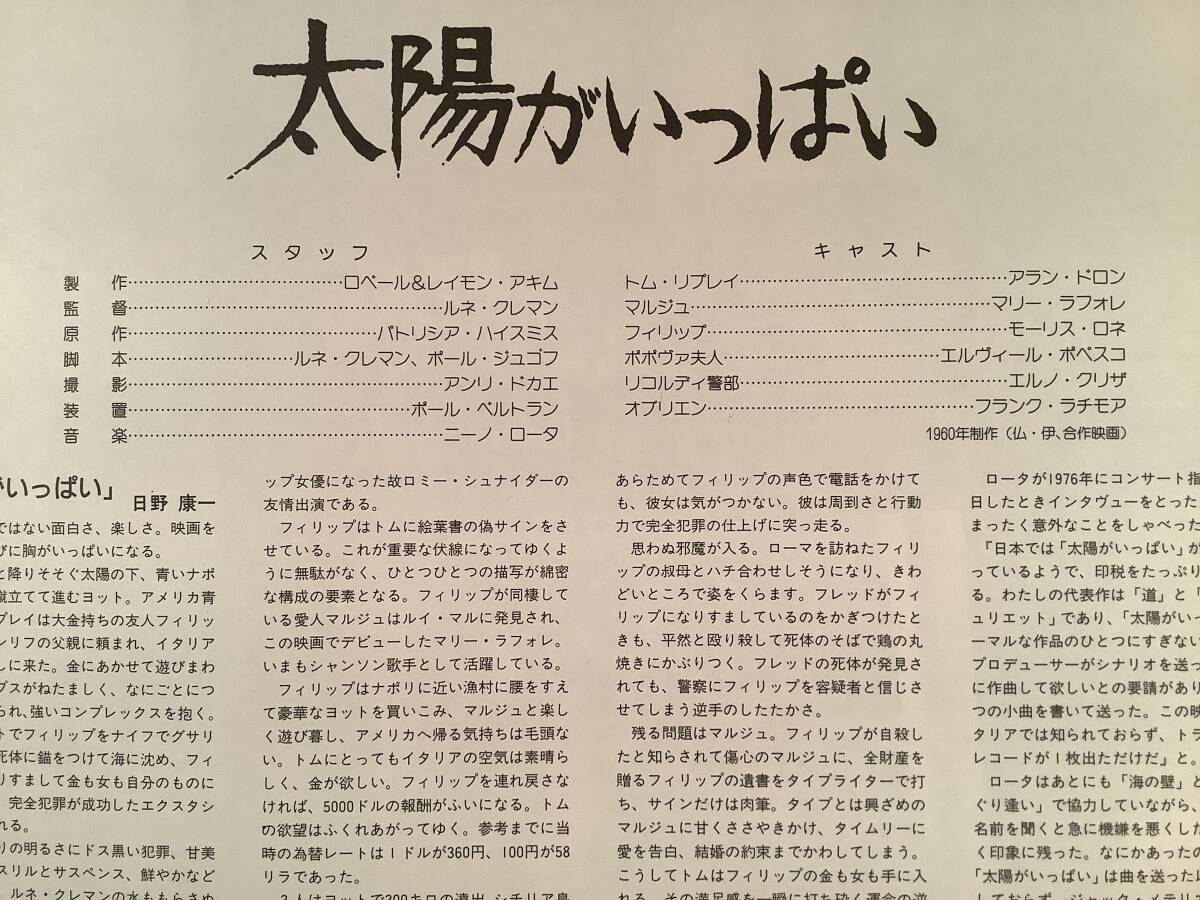 太陽がいっぱい
スタッフ
製作……ロベール&レイモン・アキム
監督……ルネ・クレマン
原作……パトリシア・ハイスミス
脚本……ルネ・クレマン、ポール・ジュゴフ
撮影……アンリ・ドカエ
装置……ポール・ベルトラン
音楽……ニーノ・ロータ
キャスト
トム・リプレイ……アラン・ドロン
マルジュ……マリー・ラフォレ
フィリップ……モーリス・ロネ
ポポヴァ夫人……エルヴィール・ポペスコ
リコルディ警部……エルノ・クリザ
オブリエン……フランク・ラチモア
1960年制作(仏・伊、合作映画)
がいっぱい」
日野 康一
ではない面白さ、楽しさ。映画を
びに胸がいっぱいになる。
と降りそそぐ太陽の下、青いナポ
蹴立てて進むヨット。アメリカ青
プレイは大金持ちの友人フィリッ
ンリフの父親に頼まれ、イタリア
しに来た。金にあかせて遊びまわ
プスがねたましく、なにごとにつ
られ、強いコンプレックスを抱く。
トでフィリップをナイフでグサリ
死体に錨をつけて海に沈め、フィ
りすまして金も女も自分のものに
完全犯罪が成功したエクスタシ
れる。
りの明るさにドス黒い犯罪、甘美
スリルとサスペンス、鮮やかなど
。ルネ・クレマンの水ももらさぬ
ップ女優になった故ロミー・シュナイダーの
友情出演である。
フィリップはトムに絵葉書の偽サインをさ
せている。これが重要な伏線になってゆくよ
うに無駄がなく、ひとつひとつの描写が綿密
な構成の要素となる。フィリップが同棲して
いる愛人マルジュはルイ・マルに発見され、
この映画でデビューしたマリー・ラフォレ。
いまもシャンソン歌手として活躍している。
フィリップはナポリに近い漁村に腰をすえ
て豪華なヨットを買いこみ、マルジュと楽し
く遊び暮し、アメリカへ帰る気持ちは毛頭な
い。トムにとってもイタリアの空気は素晴ら
しく、金が欲しい。フィリップを連れ戻さな
ければ、5000ドルの報酬がふいになる。トム
の欲望はふくれあがってゆく。参考までに当
時の為替レートは1ドルが360円、100円が58
リラであった。
3人はヨットで200キロの遠出、シチリア島
あらためてフィリップの声色で電話をかけて
も、彼女は気がつかない。彼は周到さと行動
力で完全犯罪の仕上げに突っ走る。
思わぬ邪魔が入る。ローマを訪ねたフィリ
ップの叔母とハチ合わせしそうになり、きわ
どいところで姿をくらます。フレッドがフィ
リップになりすましているのをかぎつけたと
きも、平然と殴り殺して死体のそばで鶏の丸
焼きにかぶりつく。フレッドの死体が発見さ
れても、警察にフィリップを容疑者と信じさ
せてしまう逆手のしたたかさ。
残る問題はマルジュ。フィリップが自殺し
たと知らされて傷心のマルジュに、全財産を
贈るフィリップの遺書をタイプライターで打
ち、サインだけは肉筆。タイプとは興ざめの
マルジュに甘くささやきかけ、タイムリーに
愛を告白、結婚の約束までかわしてしまう。
こうしてトムはフィリップの金も女も手に入
れる。その満足感を一瞬に打ち砕く運命の逆
ロータが1976年にコンサート指
日したときインタヴューをとった
まったく意外なことをしゃべった
『日本では「太陽がいっぱい」が
っているようで、印税をたっぷり
る。わたしの代表作は「道」と「
ュリエット」であり、「太陽がいっ
ーマルな作品のひとつにすぎない
プロデューサーがシナリオを送っ
に作曲して欲しいとの要請があり
つの小曲を書いて送った。この映
タリアでは知られておらず、トラ
レコードが1枚出ただけだ」と。
ロータはあとにも「海の壁」と
ぐり逢い」で協力していながら、
名前を聞くと急に機嫌を悪くした
く印象に残った。なにかあったの
「太陽がいっぱい」は曲を送った以
しておらず、ジャック・メテリ